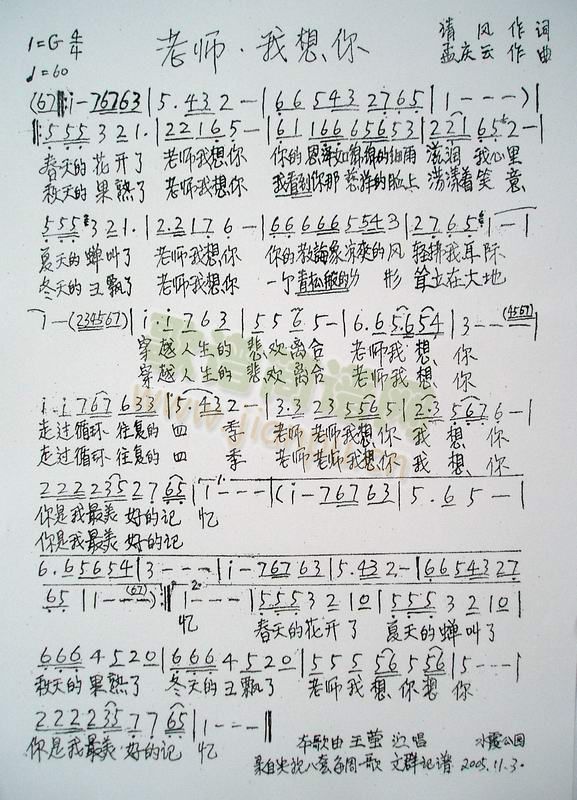 老师·我想你
1=G 4/4
♩=60
清风 作词
孟庆云 作曲
(67‖: i-76763 | 5.432- | 66543 2765 | 1---)|
‖: 555321. | 22165- | 61166656 53 | 221652- |
春天的花开了 老师我想你 你的恩泽如绵绵的细雨 滋润我心里
秋天的果熟了 老师我想你 我看到你那慈祥的脸上 荡漾着笑意
555321. | 2.2176- | 666666 5543 | 2765 1- |
夏天的蝉叫了 老师我想你 你的教诲象凉爽的风 轻拂我耳际
冬天的飘了 老师我想你 一个青松般的 形 耸立在大地
1--(234567) | i.i763 | 5565- | 6.65654 | 3--(4567) |
穿越人生的 悲欢离合 老师我想你
穿越人生的 悲欢离合 老师我想你
i.i767 633 | 5.432- | 3.323 5565 | 2.3 5676- |
走过循环往复的四季 老师老师我想你 我想你
走过循环往复的四季 老师老师我想你 我想你
222235 27 65 | 1--- | (i-76763 | 5.65- |
你是我最美好的记忆
你是我最美好的记
6.65654 | 3--- | i-76763 | 5.432- | 66543 27
65 | 1--(67) :‖ i--- | 5553210 | 5553210 |
忆 春天的花开了 夏天的蝉叫了
6664520 | 6664520 | 555 56 556 | 5--- |
秋天的果熟了 冬天的飘了 老师我想你想你
222235 77 65 | 1--- ‖
你是我最美好的记忆
本歌曲王莹演唱 水霞公园
录自央视八套每周一歌 文群记谱 2005.11.3.